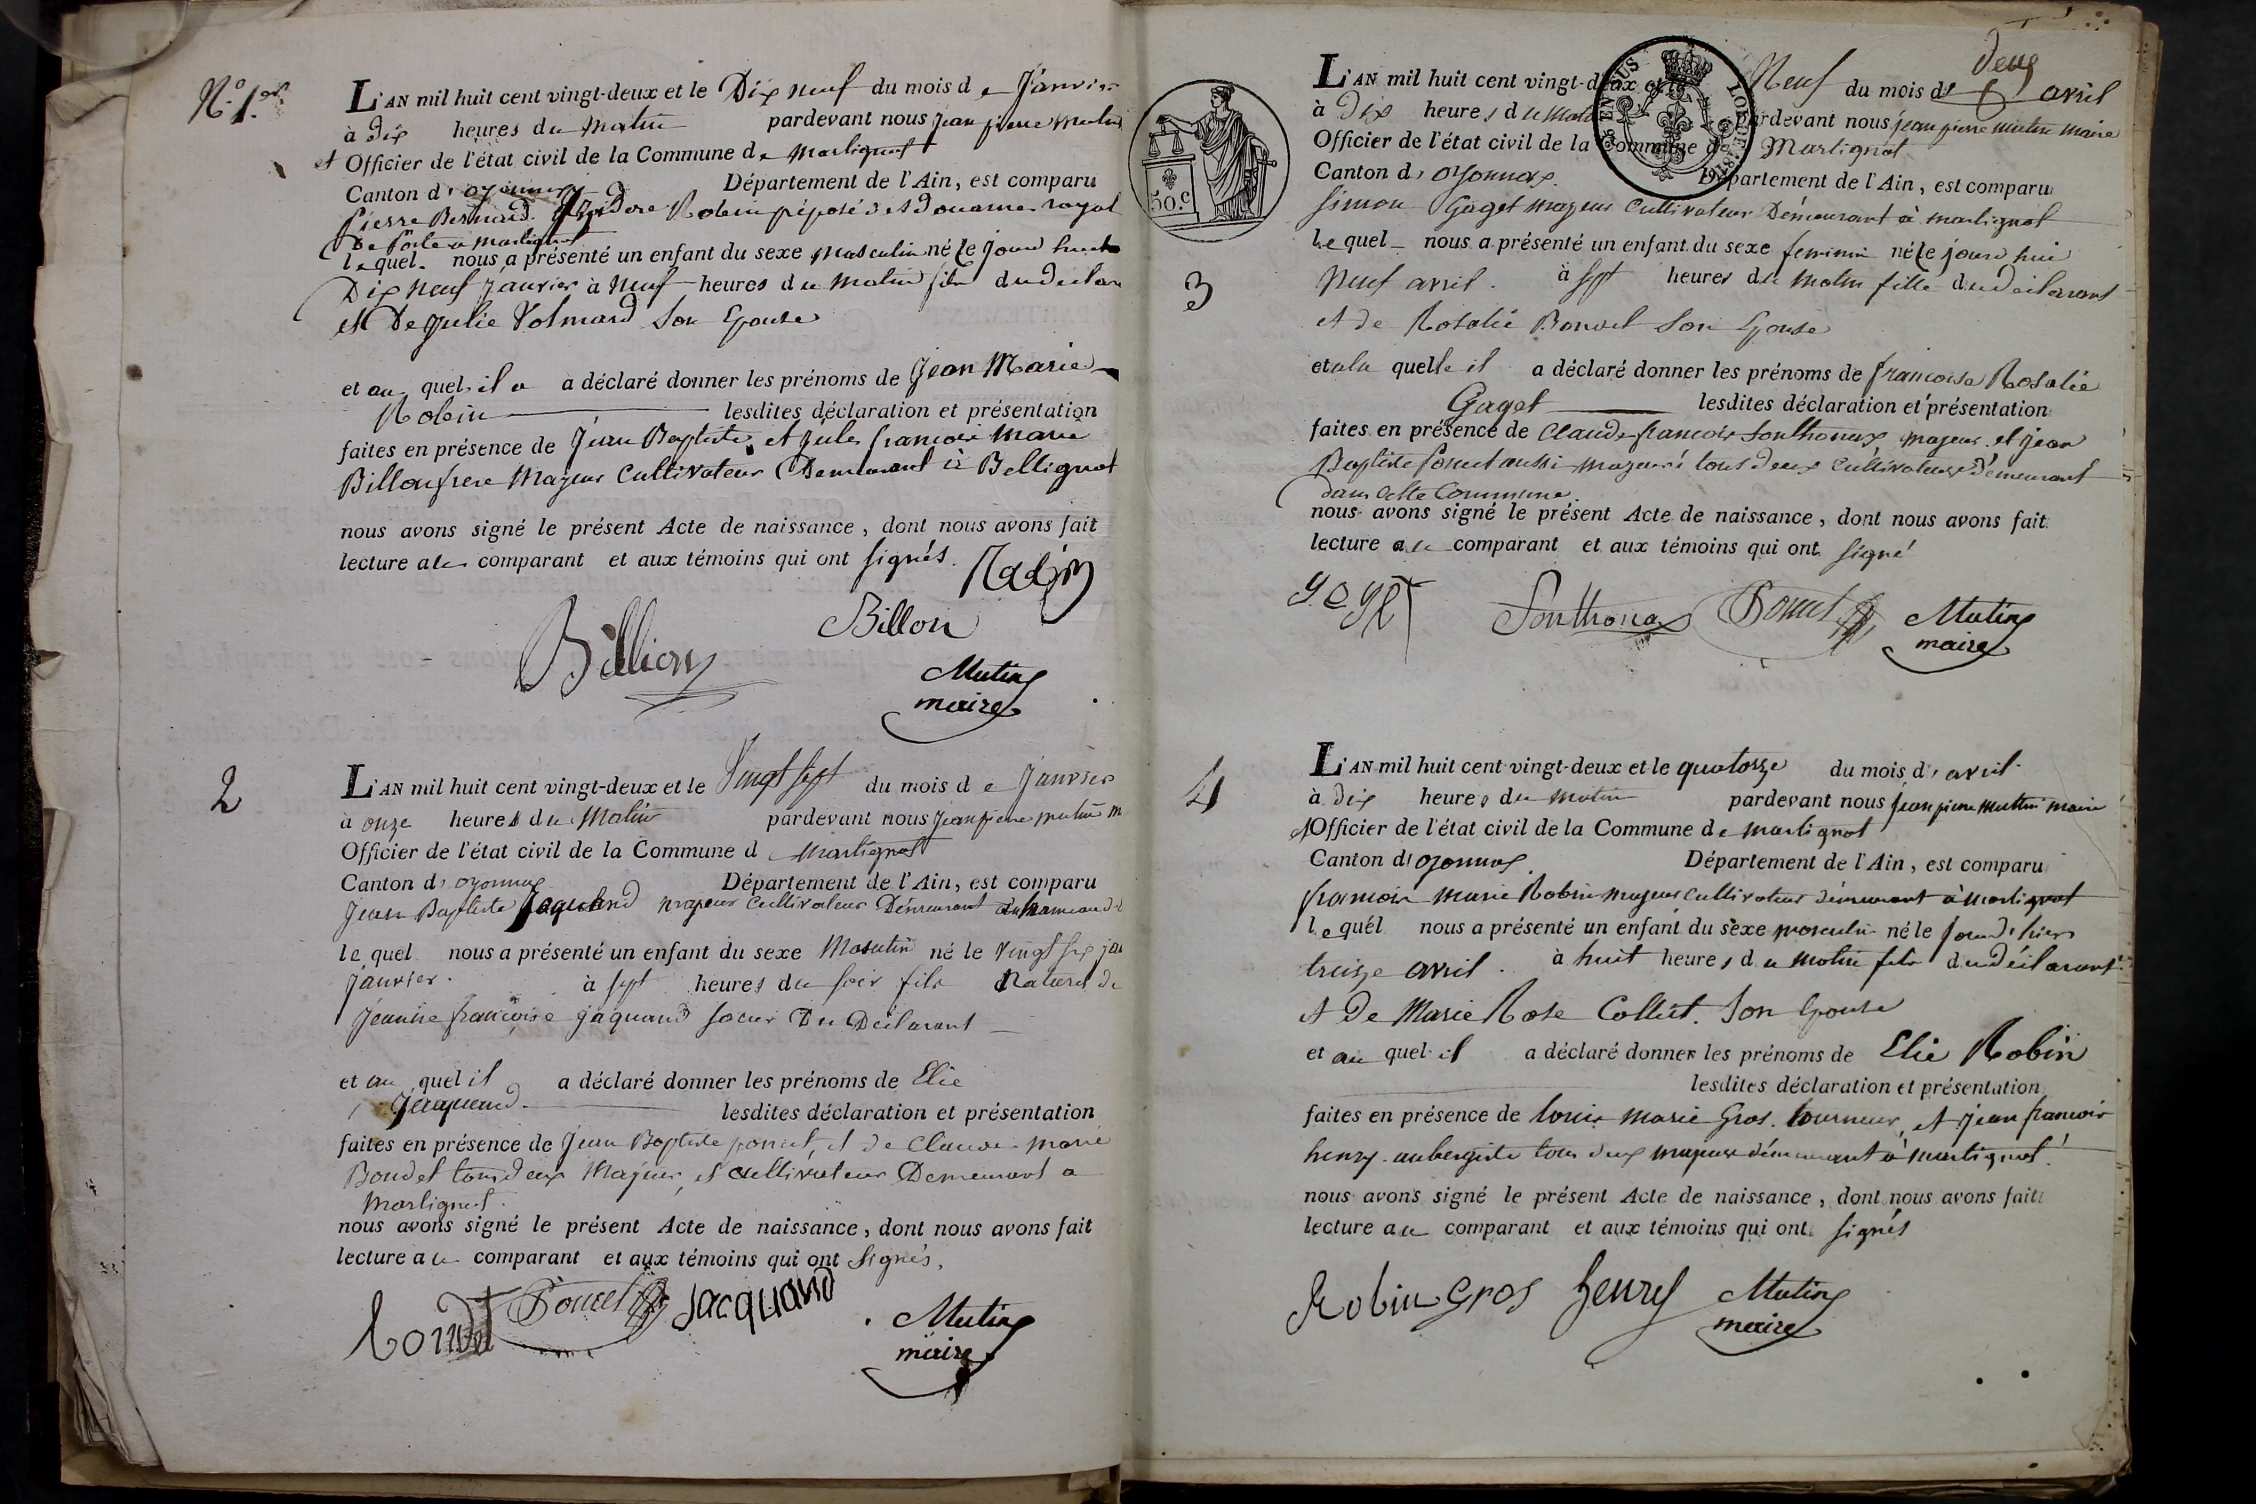 N.o 1.er
L'AN mil huit cent vingt-deux et le Dix neuf du mois de Janvier
à dix heures du matin pardevant nous jean pierre mutin
et Officier de l'état civil de la Commune de martignat
Canton d'oyonnax Département de l'Ain, est comparu
Pierre Bernard Robin préposé des douanes royal
De Poste a martignat
lequel nous a présenté un enfant du sexe masculin né le jourd huit
Dix neuf janvier à neuf heures du matin fils du declar
et De julie Volmard Son Epouse
et au quel il a a déclaré donner les prénoms de jean Marie
Robin lesdites déclaration et présentation
faites en présence de jean Baptiste et jules francois marie
Billon frere Majeur Cultivateur Demeurant à Bellignat
nous avons signé le présent Acte de naissance, dont nous avons fait
lecture au comparant et aux témoins qui ont signés.
Robin
Billion Billon
Mutin
maire
2
L'AN mil huit cent vingt-deux et le Vingt sept du mois de Janvier
à onze heures du Matin pardevant nous jean pierre mutin m
Officier de l'état civil de la Commune d martignat
Canton d'oyonnax Département de l'Ain, est comparu
Jean Baptiste Jaquand majeur Cultivateur Demeurant au hameau d
le quel nous a présenté un enfant du sexe Masculin né le vingt six jan
janvier. à sept heures du soir fils Naturel de
jeannie françoise jaquand soeur Du Declarant
et au quel il a déclaré donner les prénoms de Elie
Jacquand lesdites déclaration et présentation
faites en présence de jean Baptiste poncet, et de Claude marie
Bondet tous deux Majeur et cultivateur Demeurant a
Martignat.
nous avons signé le présent Acte de naissance, dont nous avons fait
lecture au comparant et aux témoins qui ont signés.
bondet Poncet Jacquand Mutin
maire
deux
3
L'AN mil huit cent vingt-deux et le Neuf du mois d' avril
à Dix heures du matin pardevant nous jean pierre mutin maire
Officier de l'état civil de la Commune de Martignat
Canton d'oyonnax. Département de l'Ain, est comparu
simon Gaget majeur Cultivateur Demeurant à martignat
le quel nous a présenté un enfant du sexe feminin né le jourd hui
Neuf avril. à sept heures du matin fille du déclarant
et de Rosalie Bonvel Son Epouse
et a la quelle il a déclaré donner les prénoms de francoise Rosalie
Gaget lesdites déclaration et présentation
faites en présence de Claude francois Sonthonax majeur et jean
Baptiste Poncet aussi majeur tous deux cultivateurs démeurant
dans cette Commune.
nous avons signé le présent Acte de naissance, dont nous avons fait
lecture au comparant et aux témoins qui ont signé
gaget Sonthonax Poncet Mutin
maire
50.c
LOI DE 1816
4
L'AN mil huit cent vingt-deux et le quatorze du mois d'avril
à dix heures du matin pardevant nous jean pierre mutin maire
et Officier de l'état civil de la Commune de martignat
Canton d'oyonnax. Département de l'Ain, est comparu
francois marie Robin majeur cultivateur démeurant à martignat
lequel nous a présenté un enfant du sexe masculin né le jourd'hier
treize avril. à huit heures du matin fils du déclarant
et De Marie Rose Collet. Son Epouse
et au quel il a déclaré donner les prénoms de Elie Robin
lesdites déclaration et présentation
faites en présence de louis marie Gros. tourneur, et jean francois
henry aubergiste tous deux majeur démeurant à martignat.
nous avons signé le présent Acte de naissance, dont nous avons fait
lecture au comparant et aux témoins qui ont signés
Robin Gros henry Mutin
maire